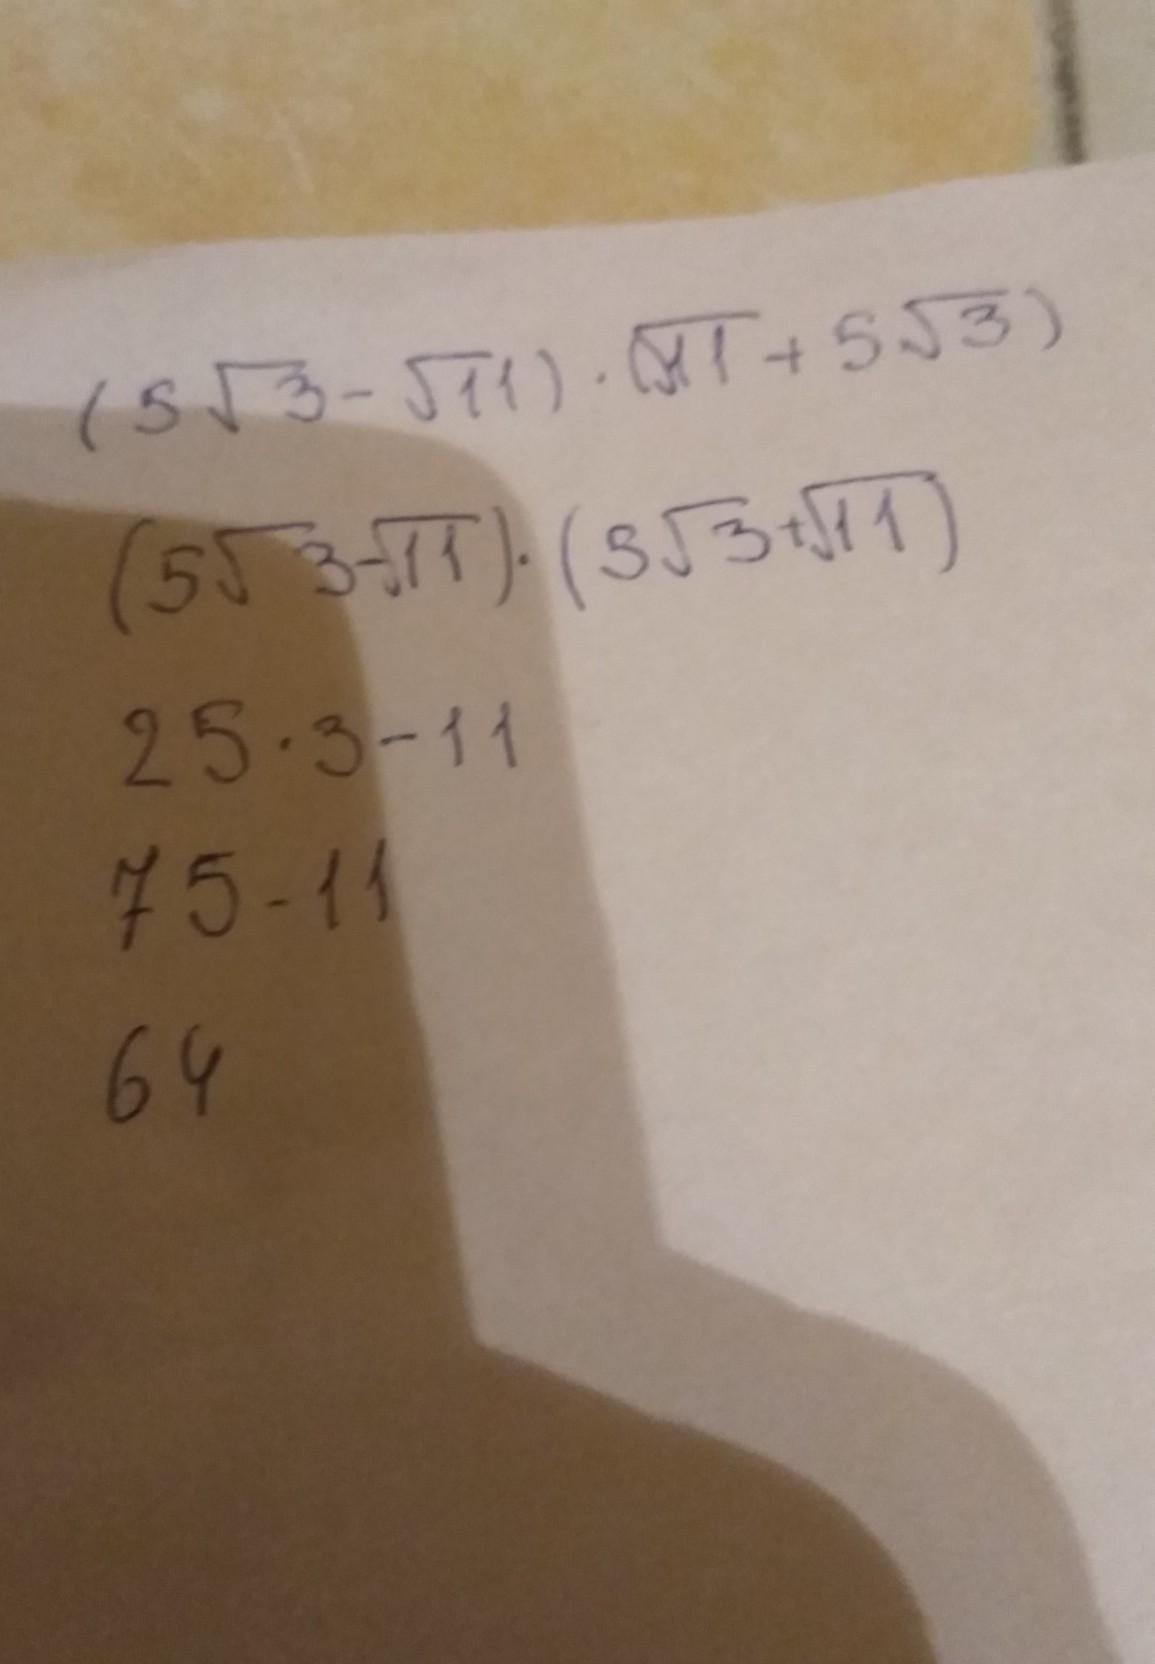 (5√3-√11)·(√11+5√3)
(5√3-√11)·(5√3+√11)
25·3-11
75-11
64